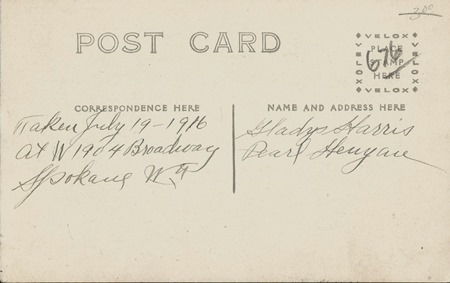 3.00
POST CARD
VELOX
VELOX
VELOX
VELOX
PLACE
STAMP
HERE
676
CORRESPONDENCE HERE
NAME AND ADDRESS HERE
Taken July 19-1916
At W 1904 Broadway
Spokane Wn
Gladys Harris
Pearl Henyan